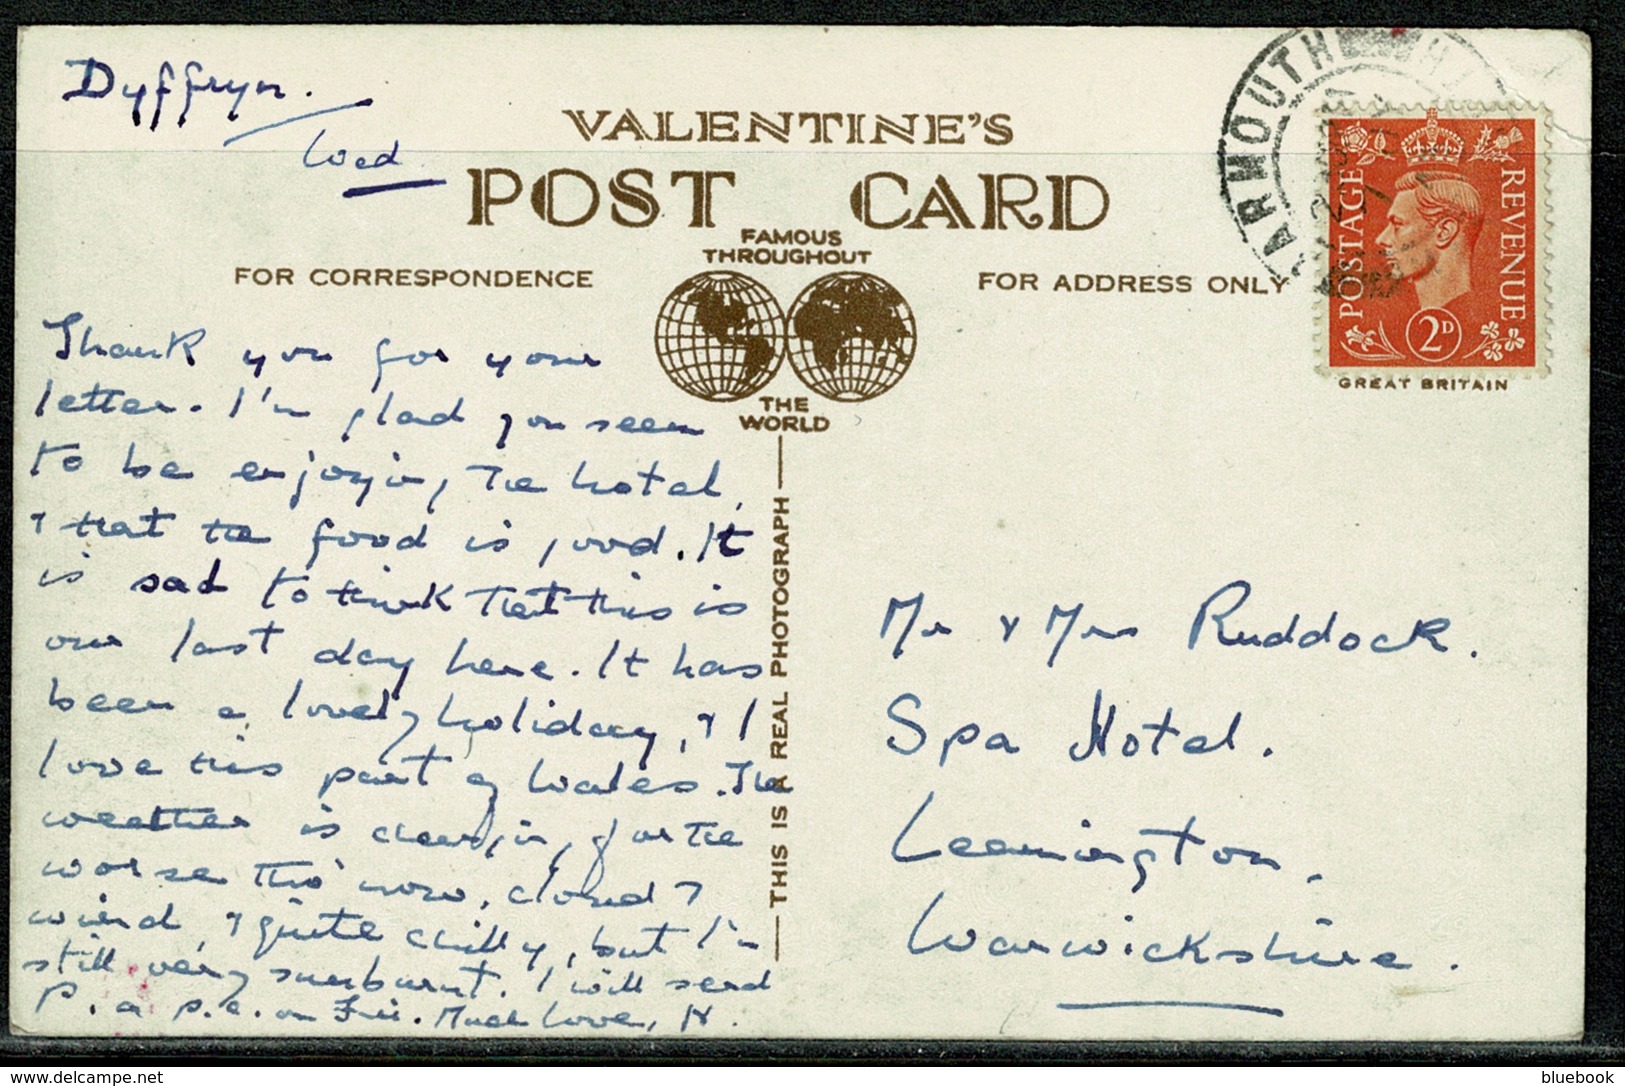 Dyffryn.
Wed
VALENTINE'S
POST CARD
FAMOUS
THROUGHOUT
THE
WORLD
FOR CORRESPONDENCE
FOR ADDRESS ONLY
ARMOUTH
POSTAGE
REVENUE
2D
GREAT BRITAIN
Thank you for your
letter. I'm glad you seem
to be enjoying the hotel,
& that the food is good. It
is sad to think that this is
our last day here. It has
been a lovely holiday, & I
love this part of Wales. The
weather is changing for the
worse tho' now, cloud &
wind, & quite chilly, but I'm
still very sunburnt. I will send
P. a p.c. on Fri. Much love, H.
THIS IS A REAL PHOTOGRAPH
Mr & Mrs Ruddock.
Spa Hotel.
Leamington,
Warwickshire.
© bluebook